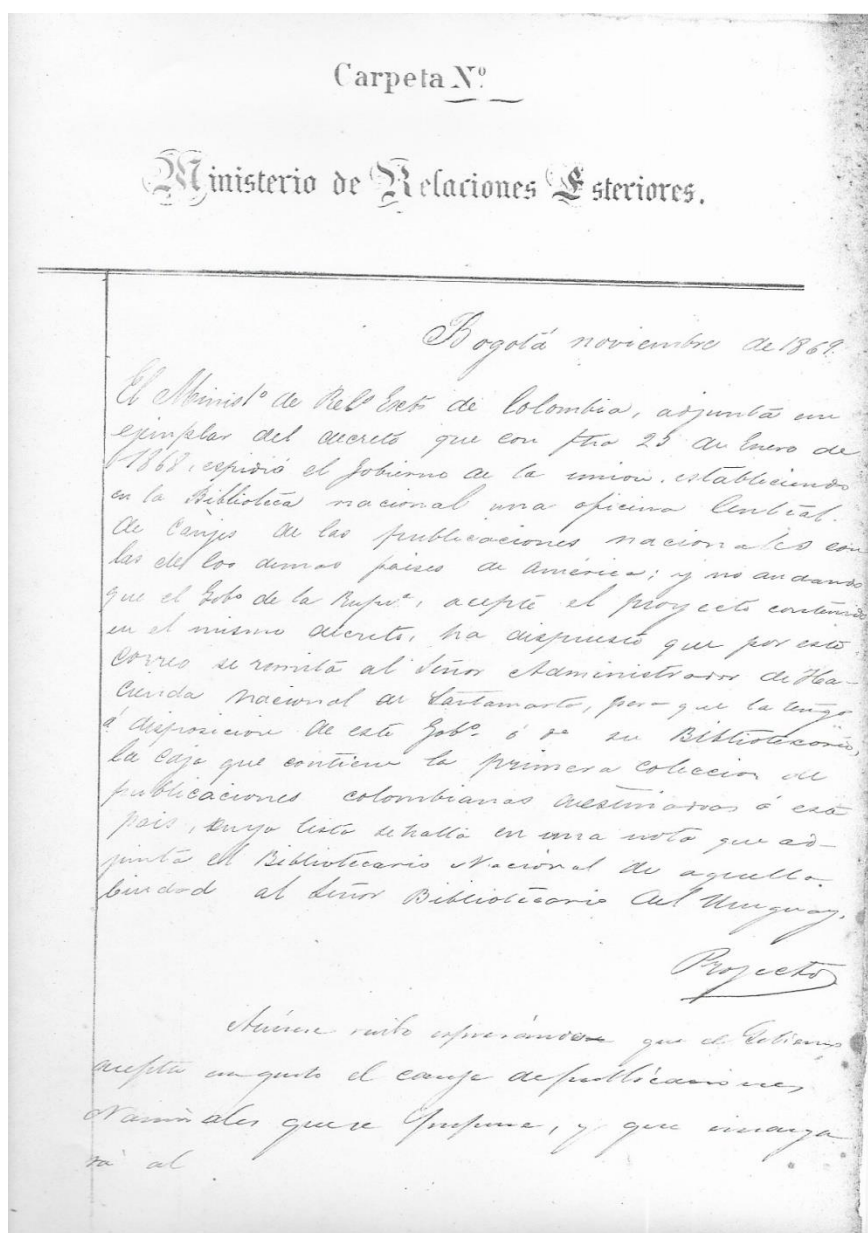 Carpeta Nº
Ministerio de Relaciones Esteriores.
Bogotá noviembre de 1869.
El Minist.º de Rel.s Exts de Colombia, adjunta un
ejemplar del decreto que con fha 25 de Enero de
1868, espidió el Gobierno de la union, estableciendo
en la Biblioteca nacional una oficina Central.
de Canjes de las publicaciones nacionales con
las de los demas paises de América; y no dudando
que el Gobº de la Repu.ª, acepte el proyecto contenido
en el mismo decreto, ha dispuesto que por este
correo se remita al Señor Administrador de Ha-
cienda nacional de Santamarta, para que la tenga
á disposicion de este Gobº ó de su Bibliotecario,
la caja que contiene la primera coleccion de
publicaciones colombianas destinadas á este
pais, cuya lista se halla en una nota que ad-
junta el Bibliotecario Nacional de aquella
Ciudad al Señor Bibliotecario del Uruguay.
Proyecto
recibo que el Gobierno
acepta con gusto el canje de publicaciones
Nacionales que se propone, y que encarga
rá al